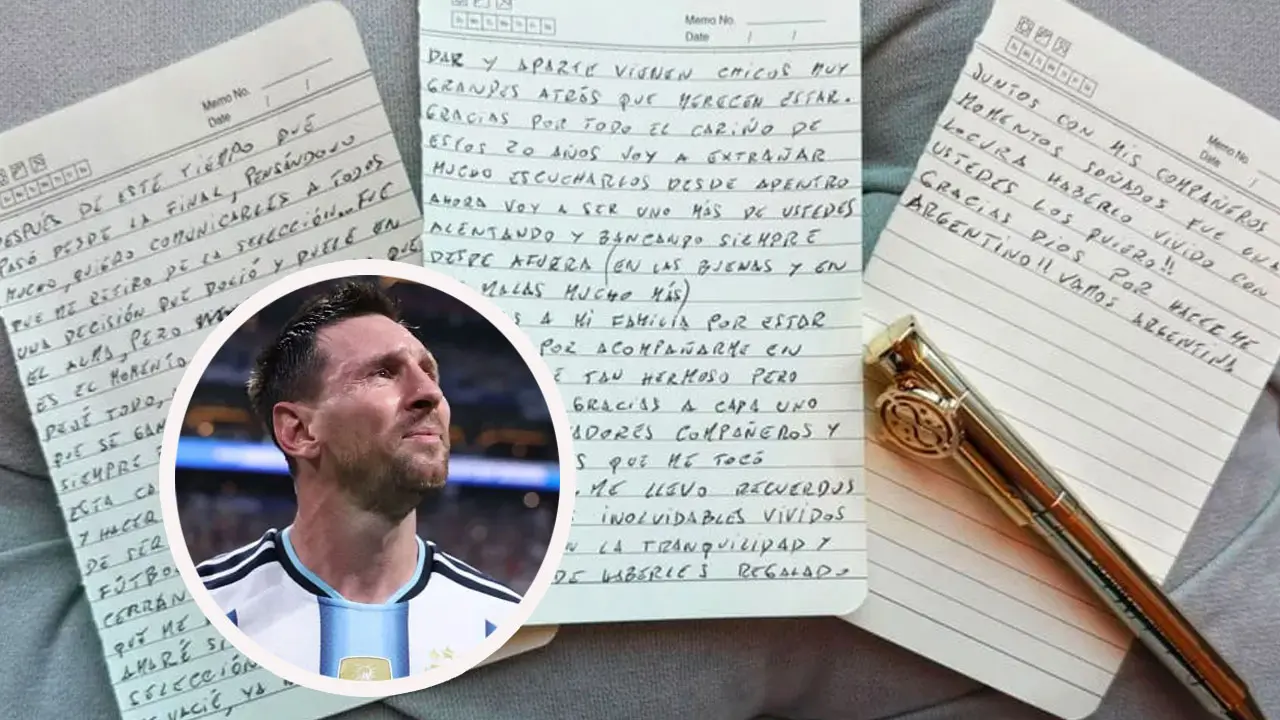 Memo No.
Date / /
DESPUÉS DE ESTE TIEMPO QUE
PASÓ DESDE LA FINAL, PENSÁNDOLO
MUCHO, QUIERO COMUNICARLES A TODOS
QUE ME RETIRO DE LA SELECCIÓN.. FUE
UNA DECISIÓN QUE DOLIÓ Y DUELE EN
EL ALMA, PERO QUE
ES EL MOMENTO
DEJÉ TODO,
QUE SE GAN
SIEMPRE
ESTA CA
Y HACER
DE SER
FÚTBO
CERRAN
QUE ME
AMARÉ SI
SELECCIÓN
VACIÉ, YA
Memo No.
Date / /
DAR Y APARTE VIENEN CHICOS MUY
GRANDES ATRÁS QUE MERECEN ESTAR.
GRACIAS POR TODO EL CARIÑO DE
ESTOS 20 AÑOS VOY A EXTRAÑAR
MUCHO ESCUCHARLOS DESDE ADENTRO
AHORA VOY A SER UNO MÁS DE USTEDES
ALENTANDO Y BANCANDO SIEMPRE
DESDE AFUERA (EN LAS BUENAS Y EN
MALAS MUCHO MÁS)
S A MI FAMILIA POR ESTAR
POR ACOMPAÑARME EN
E TAN HERMOSO PERO
GRACIAS A CADA UNO
ADORES COMPAÑEROS Y
S QUE ME TOCÓ
ME LLEVO RECUERDOS
INOLVIDABLES VIVIDOS
N LA TRANQUILIDAD Y
DE HABERLES REGALADO
Memo No.
Date /
JUNTOS CON MIS COMPAÑEROS
MOMENTOS SOÑADOS FUE UNA
LOCURA HABERLO VIVIDO CON
USTEDES LOS QUIERO!!
GRACIAS DIOS POR HACERME
ARGENTINO!! VAMOS ARGENTINA